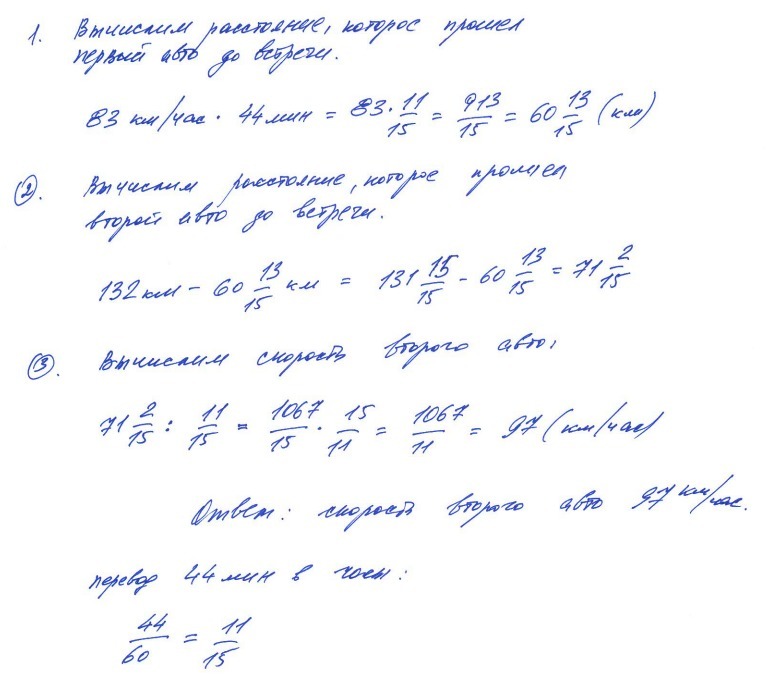 1. Вычислим расстояние, которое прошел
первый авто до встречи.
83 км/час · 44 мин = 83 · 11/15 = 913/15 = 60 13/15 (км)
2. Вычислим расстояние, которое прошел
второй авто до встречи.
132 км - 60 13/15 км = 131 15/15 - 60 13/15 = 71 2/15
3. Вычислим скорость второго авто:
71 2/15 : 11/15 = 1067/15 · 15/11 = 1067/11 = 97 (км/час)
Ответ: скорость второго авто 97 км/час.
перевод 44 мин в часы:
44/60 = 11/15